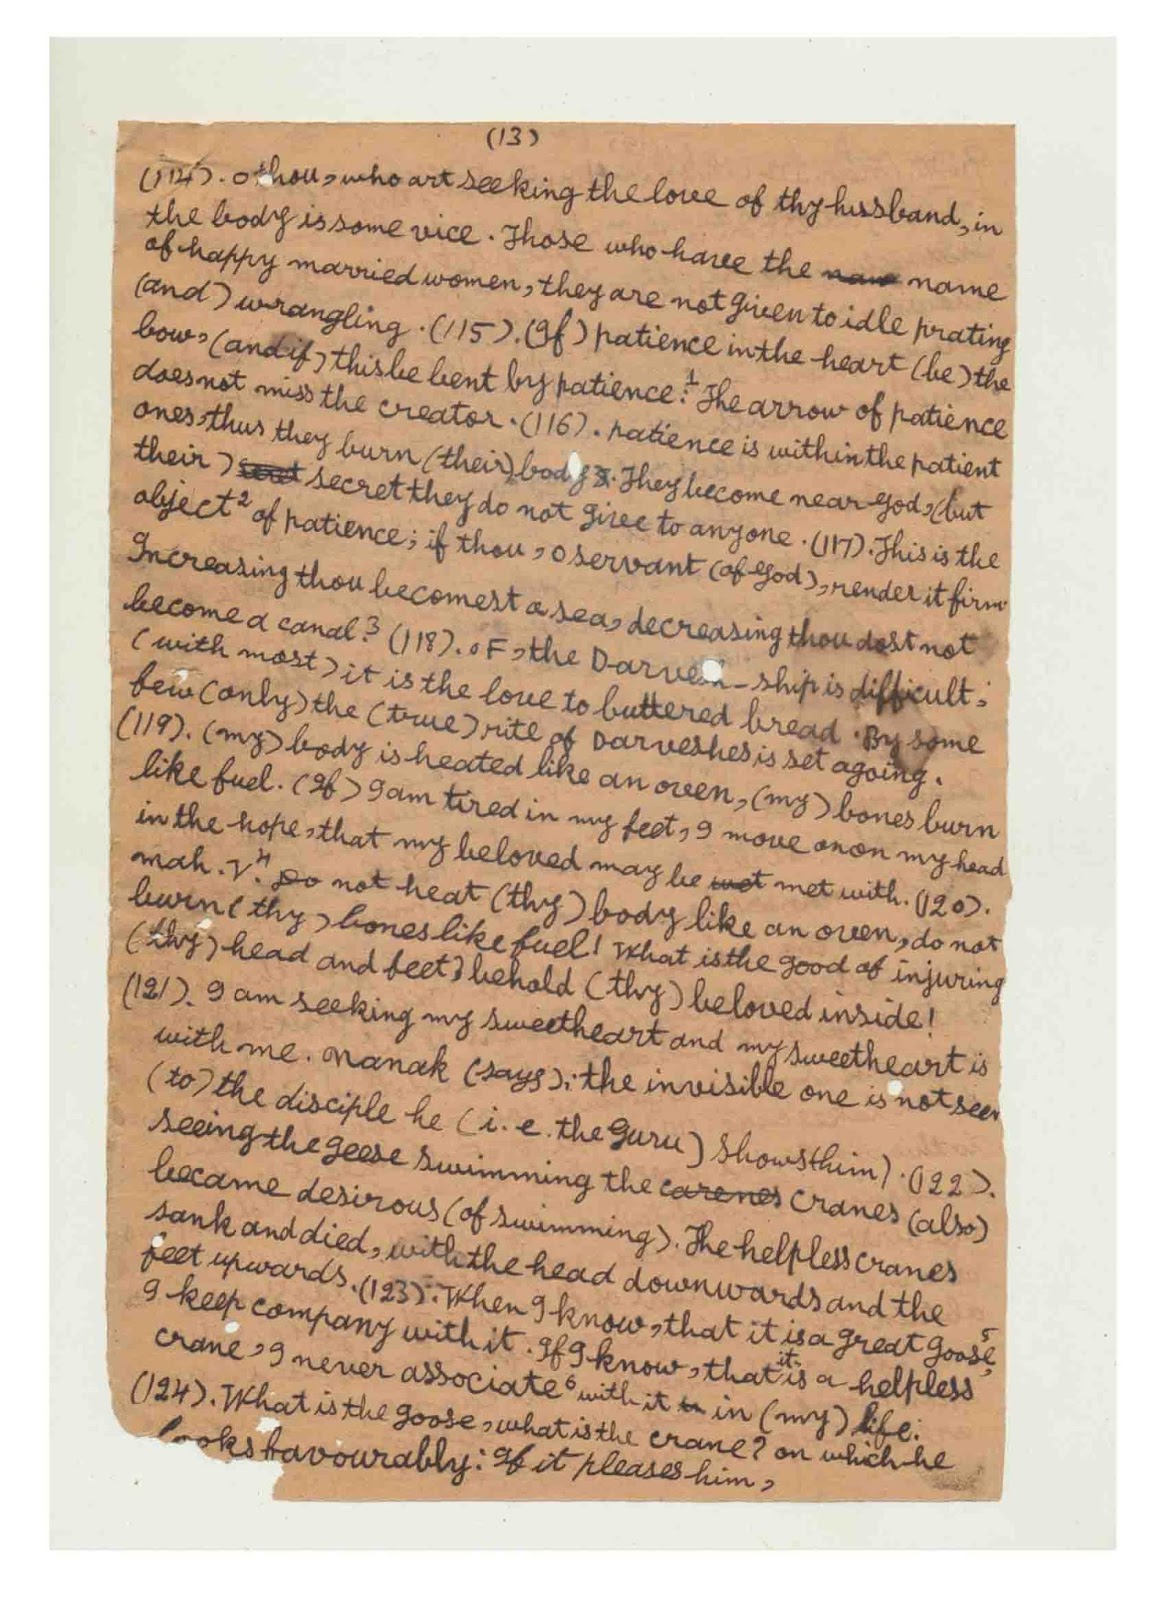 (13)
(114). o thou, who art seeking the love of thy hussband, in
the body is some vice. Those who have the name
of happy married women, they are not given to idle prating
(and) wrangling. (115). (If) patience in the heart (be) the
bow, (and if) this be bent by patience:¹ The arrow of patience
does not miss the creator. (116). patience is within the patient
ones, thus they burn (their) body. They become near God, (but
their) secret they do not give to anyone. (117). This is the
object² of patience; if thou, o servant (of God), render it firm
Increasing thou becomest a sea, decreasing thou dost not
become a canal.³ (118). oF, the Darvesh-ship is difficult;
(with most) it is the love to buttered bread. By some
few (only) the (true) rite of Darveshes is set agoing.
(119). (my) body is heated like an oven, (my) bones burn
like fuel. (If) I am tired in my feet, I move onon my head
in the hope, that my beloved may be met with. (120).
mah. V.⁴ Do not heat (thy) body like an oven, do not
burn (thy) bones like fuel! What is the good of injuring
(thy) head and feet? behold (thy) beloved inside!
(121). I am seeking my sweetheart and my sweetheart is
with me. Nanak (says): the invisible one is not seen
(to) the disciple he (i.e. the Guru) shows (him). (122).
seeing the geese swimming the carenes cranes (also)
became desirous (of swimming). The helpless cranes
sank and died, with the head downwards and the
feet upwards. (123). When I know, that it is a great goose,⁵
I keep company with it. If I know, that it is a helpless
crane, I never associate⁶ with it in (my) life.
(124). What is the goose, what is the crane? on which he
looks favourably: If it pleases him,